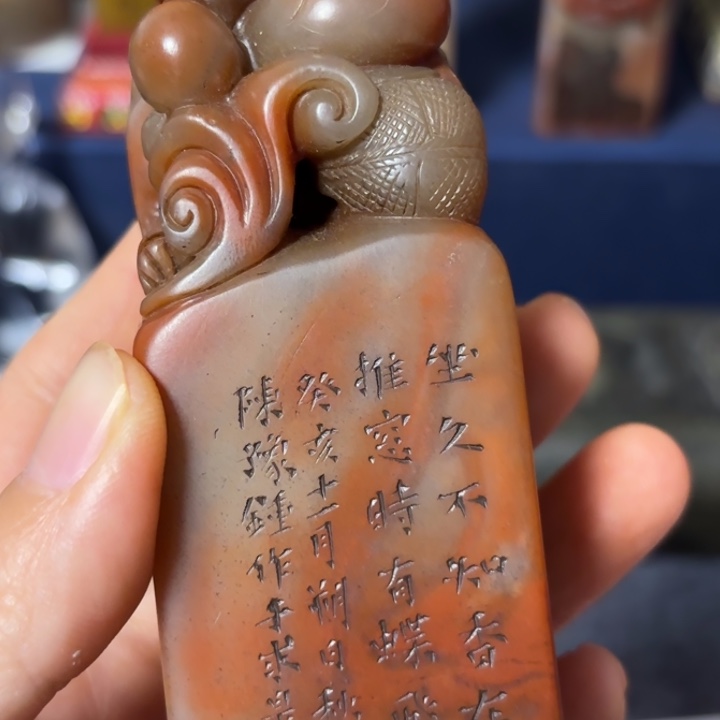 坐久不知香在
推窓時有蝶飛
癸亥十一月朔日秋
陳豫鍾作于求是